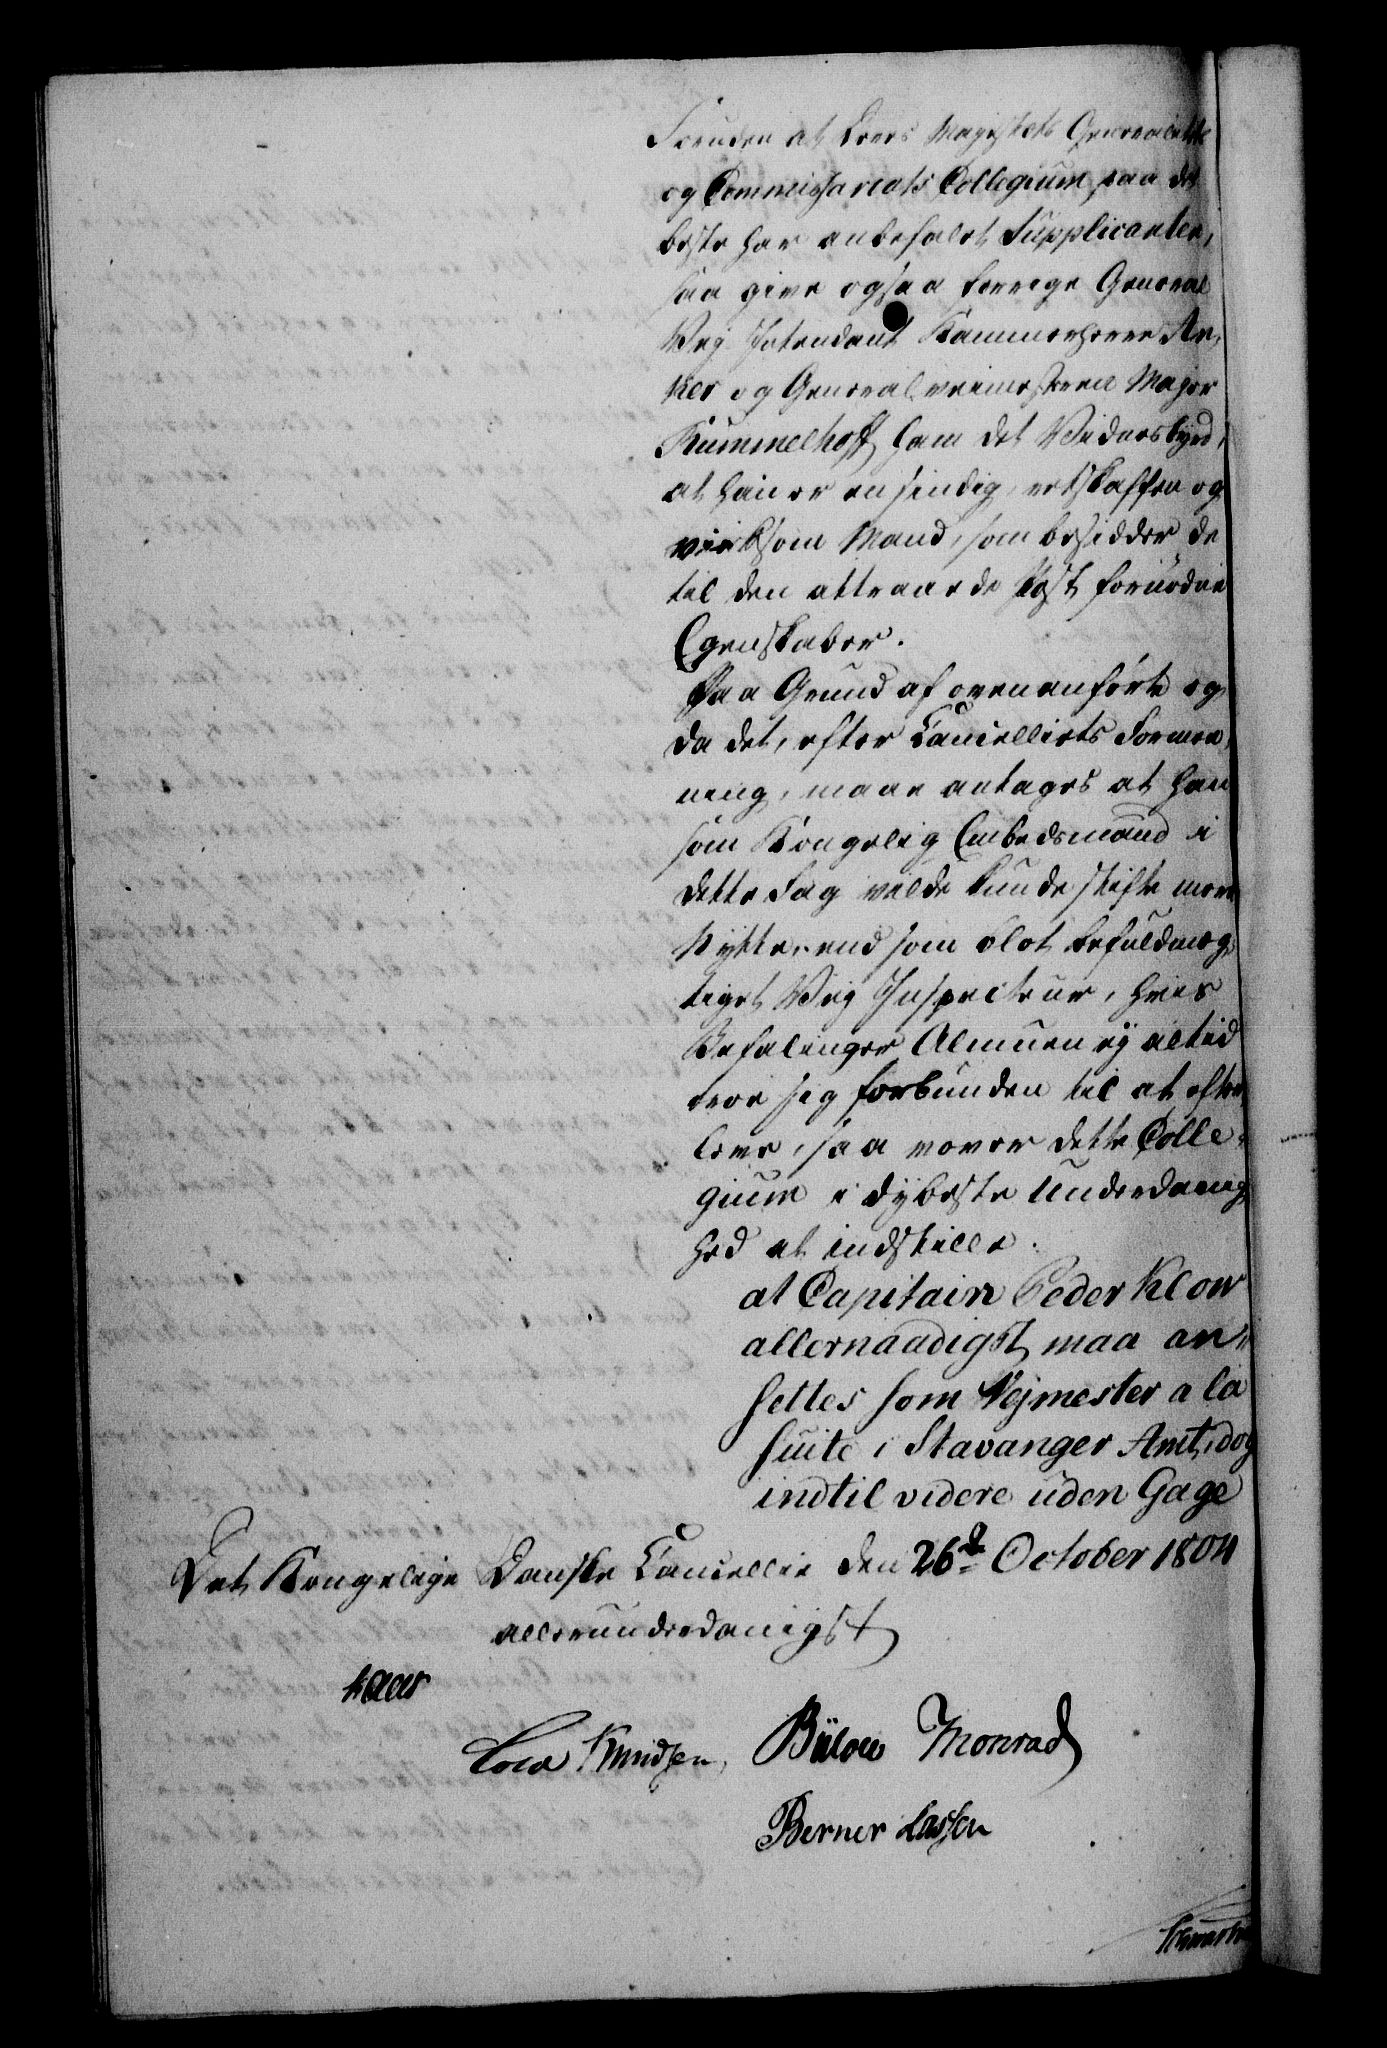 Foruden at Deres Majestæts Generalitets
og Commissariats Collegium paa det
beste har anbefalet Supplicanten,
saa give ogsaa forrige General
Vej Intendant Kammerherre An-
ker og Generalveimesteren Major
Kummelhoff ham det Vidnesbyrd,
at han er en sindig, retskaffen og
virksom Mand, som besidder de
til den attraaede Post fornødne
Egenskaber.
Paa Grund af ovenanførte og
da det, efter Cancelliets Formee-
ning, maae antages at han
som Kongelig Embedsmand i
dette Fag vilde kunde stifte meere
Nytte, end som blot befuldmæg-
tiget Vej Inspecteur, hvis
Befalinger Almuen ej altid
troer sig forbunden til at efter-
leve, saa vover dette Colle-
gium i dybeste Underdanig-
hed at indstille.
at Capitain Peder Klow
allernaadigst maa an-
settes som Vejmester a la
suite i Stavanger Amt, dog
indtil videre uden Gage
Det Kongelige Danske Cancellie den 26de October 1804
allerunderdanigst
Kaas
Cold Knudsen, Bülow Monrad
Berner Lassen